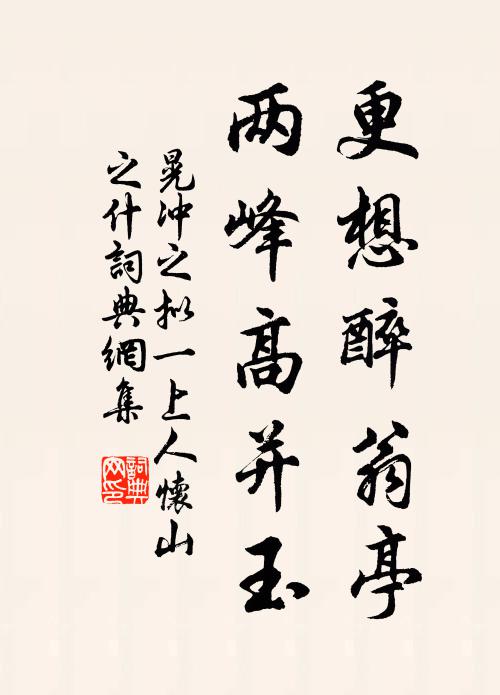 更想醉翁亭
两峰高并玉
晃冲之拟一上人懷山
之什詞典網集
詞典
网印